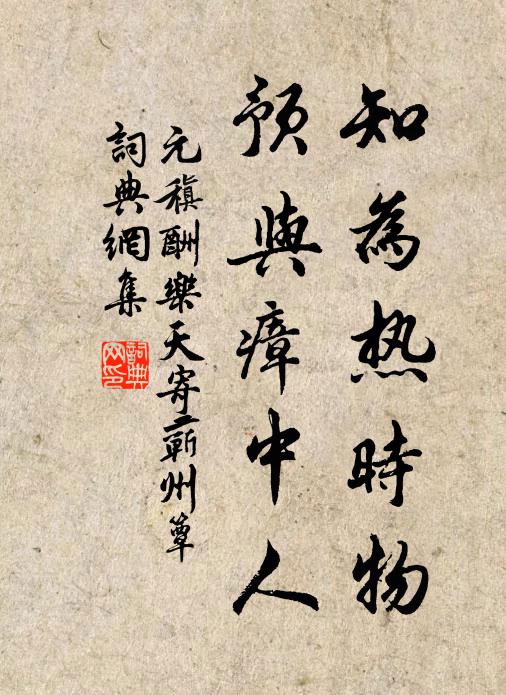 知為热時物
預與瘴中人
元稹酬樂天寄蘄州簟
詞典網集
詞典網印